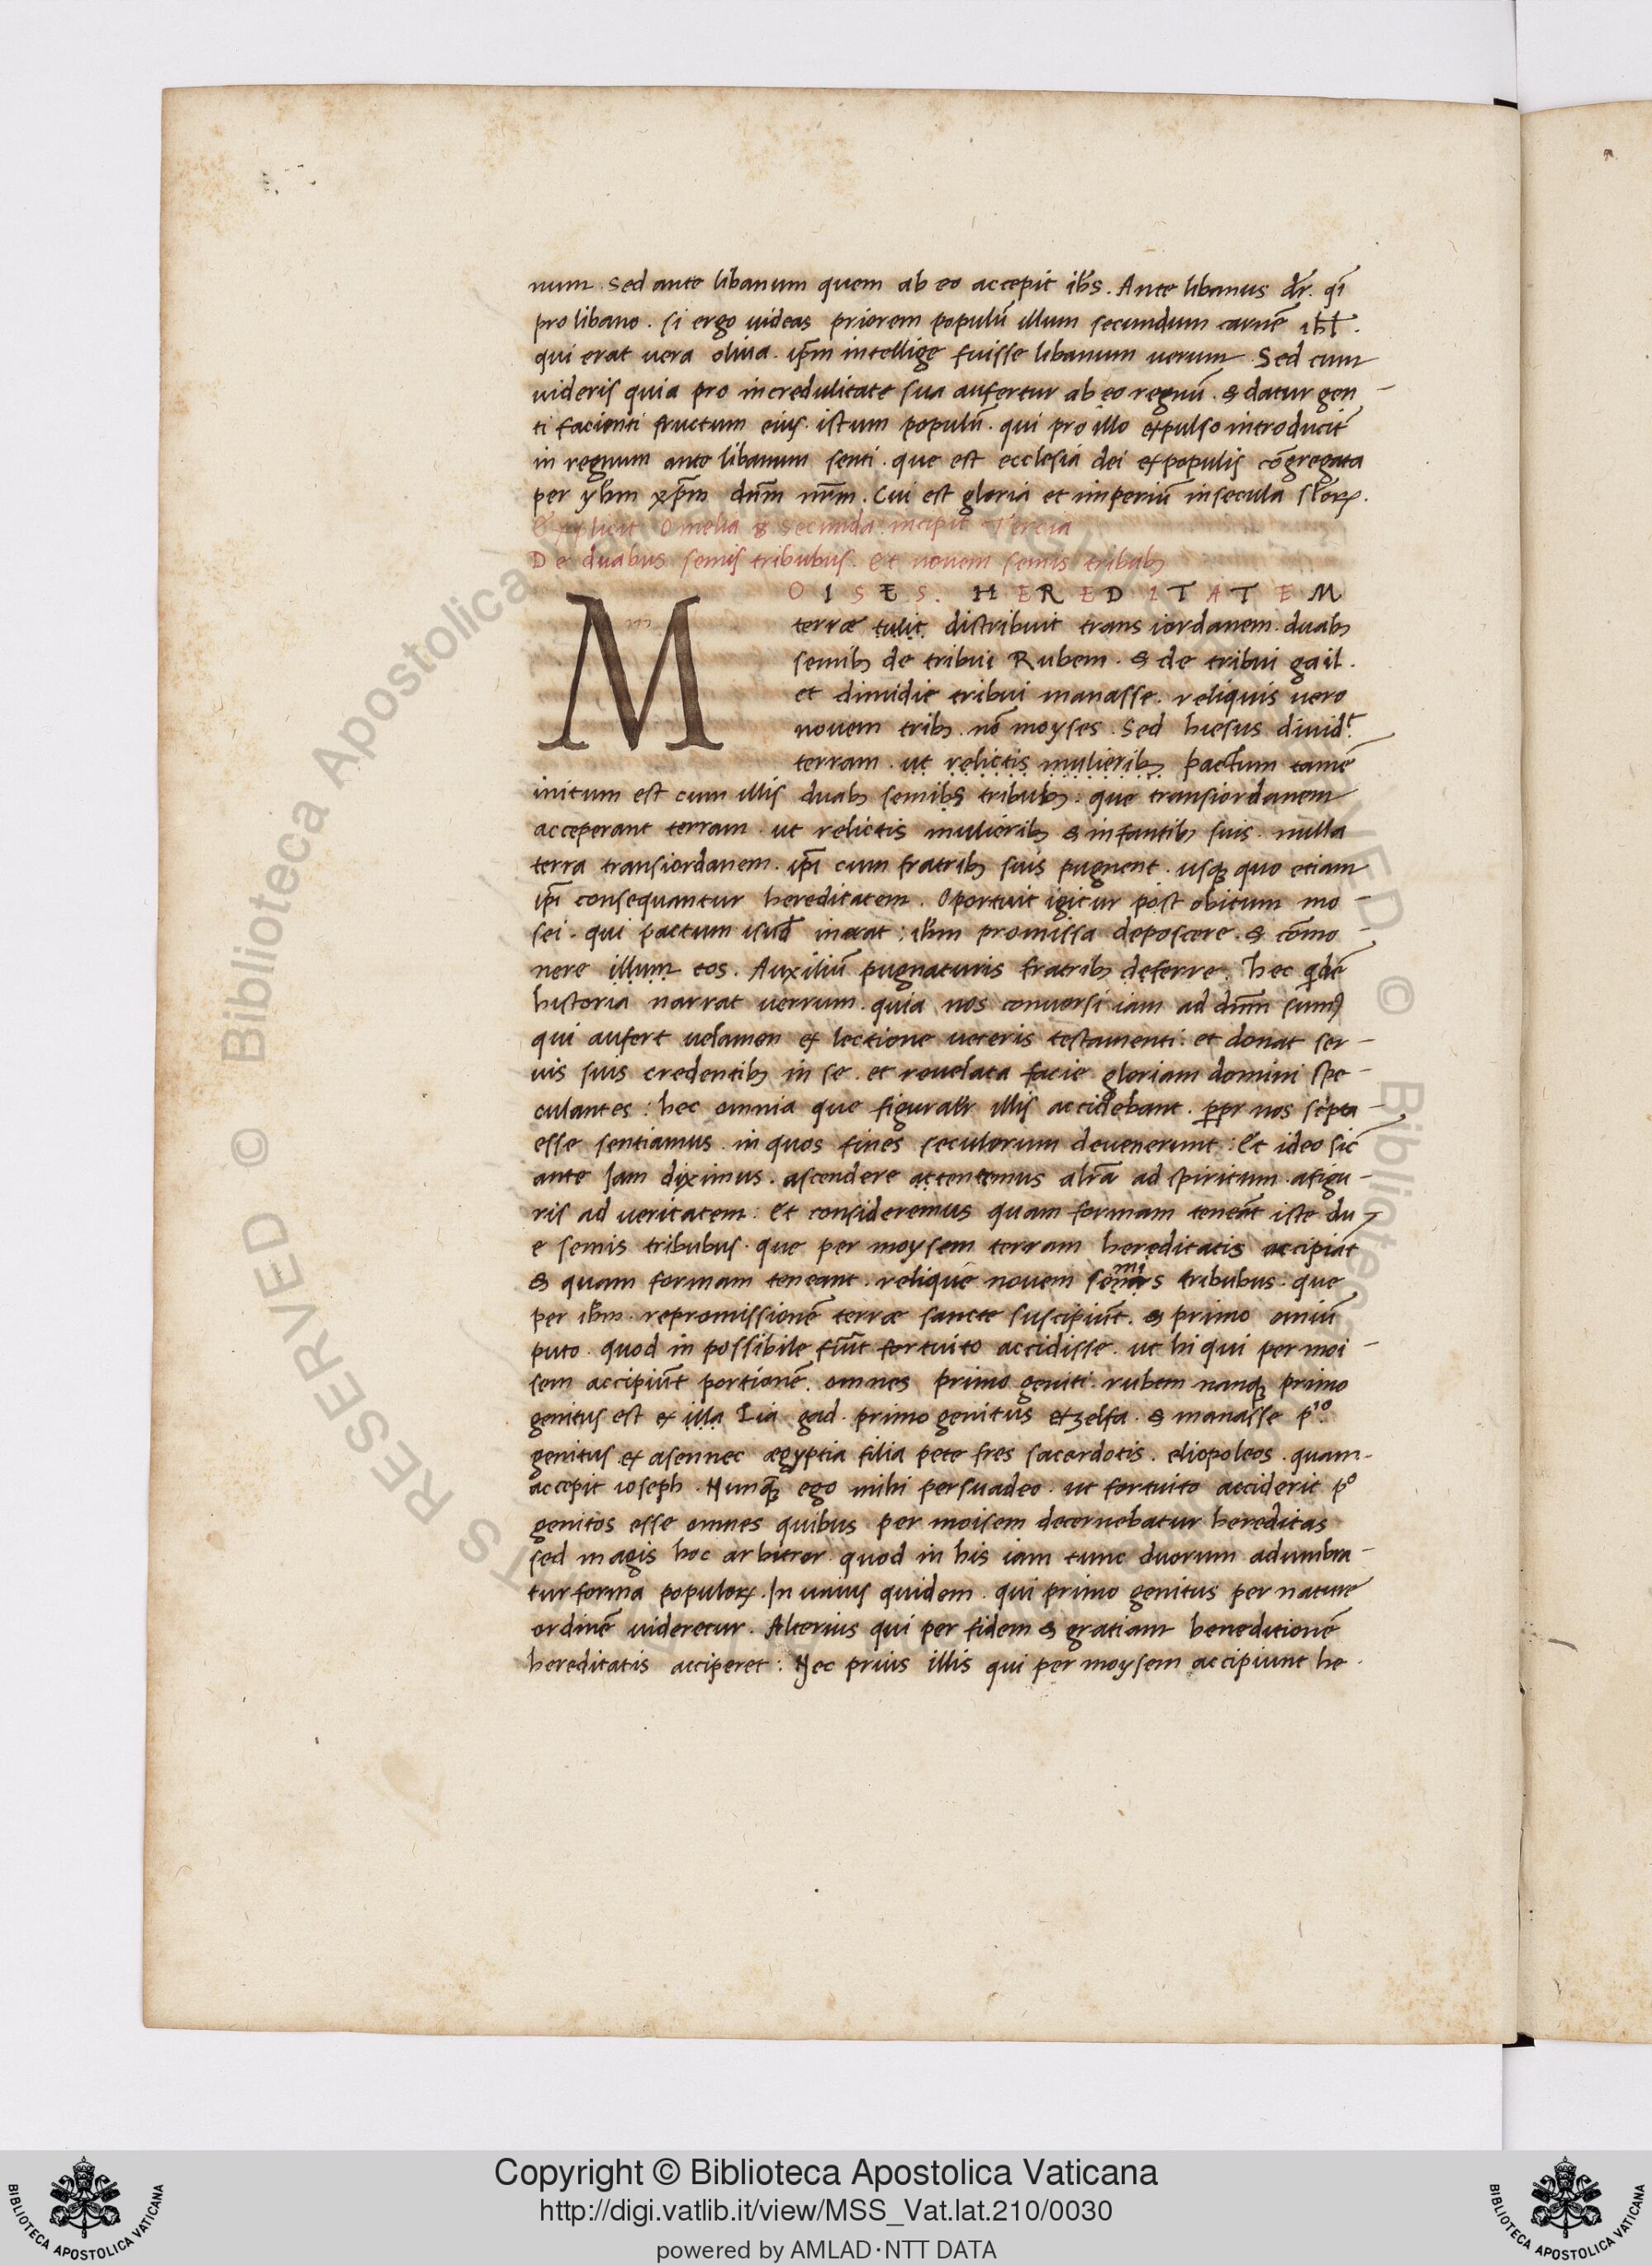 num. sed ante libanum quem ab eo accepit ihs̄. Ante libanus dr̄. qi̅
pro libano. si ergo uideas priorem populū illum secundum carnē isrl̄.
qui erat uera oliua. ip̄m intellige fuisse libanum uerum. Sed cum
uideris quia pro incredulitate sua aufertur ab eo regnū. & datur gen-
ti facienti fructum eius. istum populū. qui pro illo expulso introducit̄
in regnum ante libanum senti. que est ecclesia dei ex populis cōgregata
per yhm̄ xp̄m dn̄m nr̄m. Cui est gloria et imperiū in secula sc̄lorꝝ.
Explicit Omelia Secunda incipit Tercia
De duabus semis tribubus. Et novem semis tribubꝫ
M OISES. HEREDITATEM
terræ tulit distribuit trans iordanem. duabꝫ
semibꝫ de tribui Rubem. & de tribui gail.
et dimidie tribui manasse. reliquis uero
nouem tribꝫ. nō moyses. Sed hiesus diuidᵗ.
terram. ut relictis mulieribꝫ pactum tamē
initum est cum illis duabꝫ semibꝫ tribubꝫ: que transiordanem
acceperant terram. ut relictis mulieribꝫ & infantibꝫ suis. nulla
terra transiordanem. ip̄i cum fratribꝫ suis pugnent. usqꝫ quo etiam
ip̄i consequantur hereditatem. Oportuit igitur post obitum mo-
sei. qui pactum isud̄ inerat: ihm̄ promissa deposcere. & cōmo-
nere illum eos. Auxiliū pugnaturis fratribꝫ deferre. hec qdē
historia narrat uerrum. quia nos conuersi iam ad dn̄m sumꝰ
qui aufert uelamen ex lectione ueteris testamenti: et donat ser-
uis suis credentibꝫ in se. et reuelata facie gloriam domini spe-
culantes: hec omnia que figuratr̄ illis accidebant. ꝓpr nos sc̄pta-
esse sentiamus. in quos fines seculorum deuenerunt: Et ideo sic̄
ante Jam diximus. ascendere attentemus alr̄a ad spiritum. afigu-
ris ad ueritatem: Et consideremus quam formam teneāt iste du-
e semis tribubus. que per moysem terram hereditatis accipiāt
& quam formam teneant. relique nouem semis tribubus. que
per ihm̄. repromissionē terræ sancte suscipiūt. & primo omiū
puto. quod in possibile fuit̄ fortuito accidisse. ut hi qui per moi-
sem accipiūt portionē. omnes primo geniti. rubem nanqꝫ primo
genitus est ex illa Lia gad. primo genitus et zelfa. & manasse pⁱᵒ.
genitus. ex asennec ægyptia filia pete fres sacerdotis. eliopoleos. quam-
accepit ioseph. Nunqꝫ ego mihi persuadeo. ut fortuito acciderit pº
genitos esse omnes quibus per moisem decernebatur hereditas
sed magis hoc arbitror quod in his iam tunc duorum adumbra-
tur forma populorꝝ. In unius quidem. qui primo genitus per nature
ordinē uideretur. Alterius qui per fidem & gratiam beneditionē
hereditatis acciperet: Nec prius illis qui per moysem accipiunt he.
Copyright © Biblioteca Apostolica Vaticana
http://digi.vatlib.it/view/MSS_Vat.lat.210/0030
powered by AMLAD·NTT DATA
BIBLIOTECA APOSTOLICA VATICANA
BIBLIOTECA APOSTOLICA VATICANA